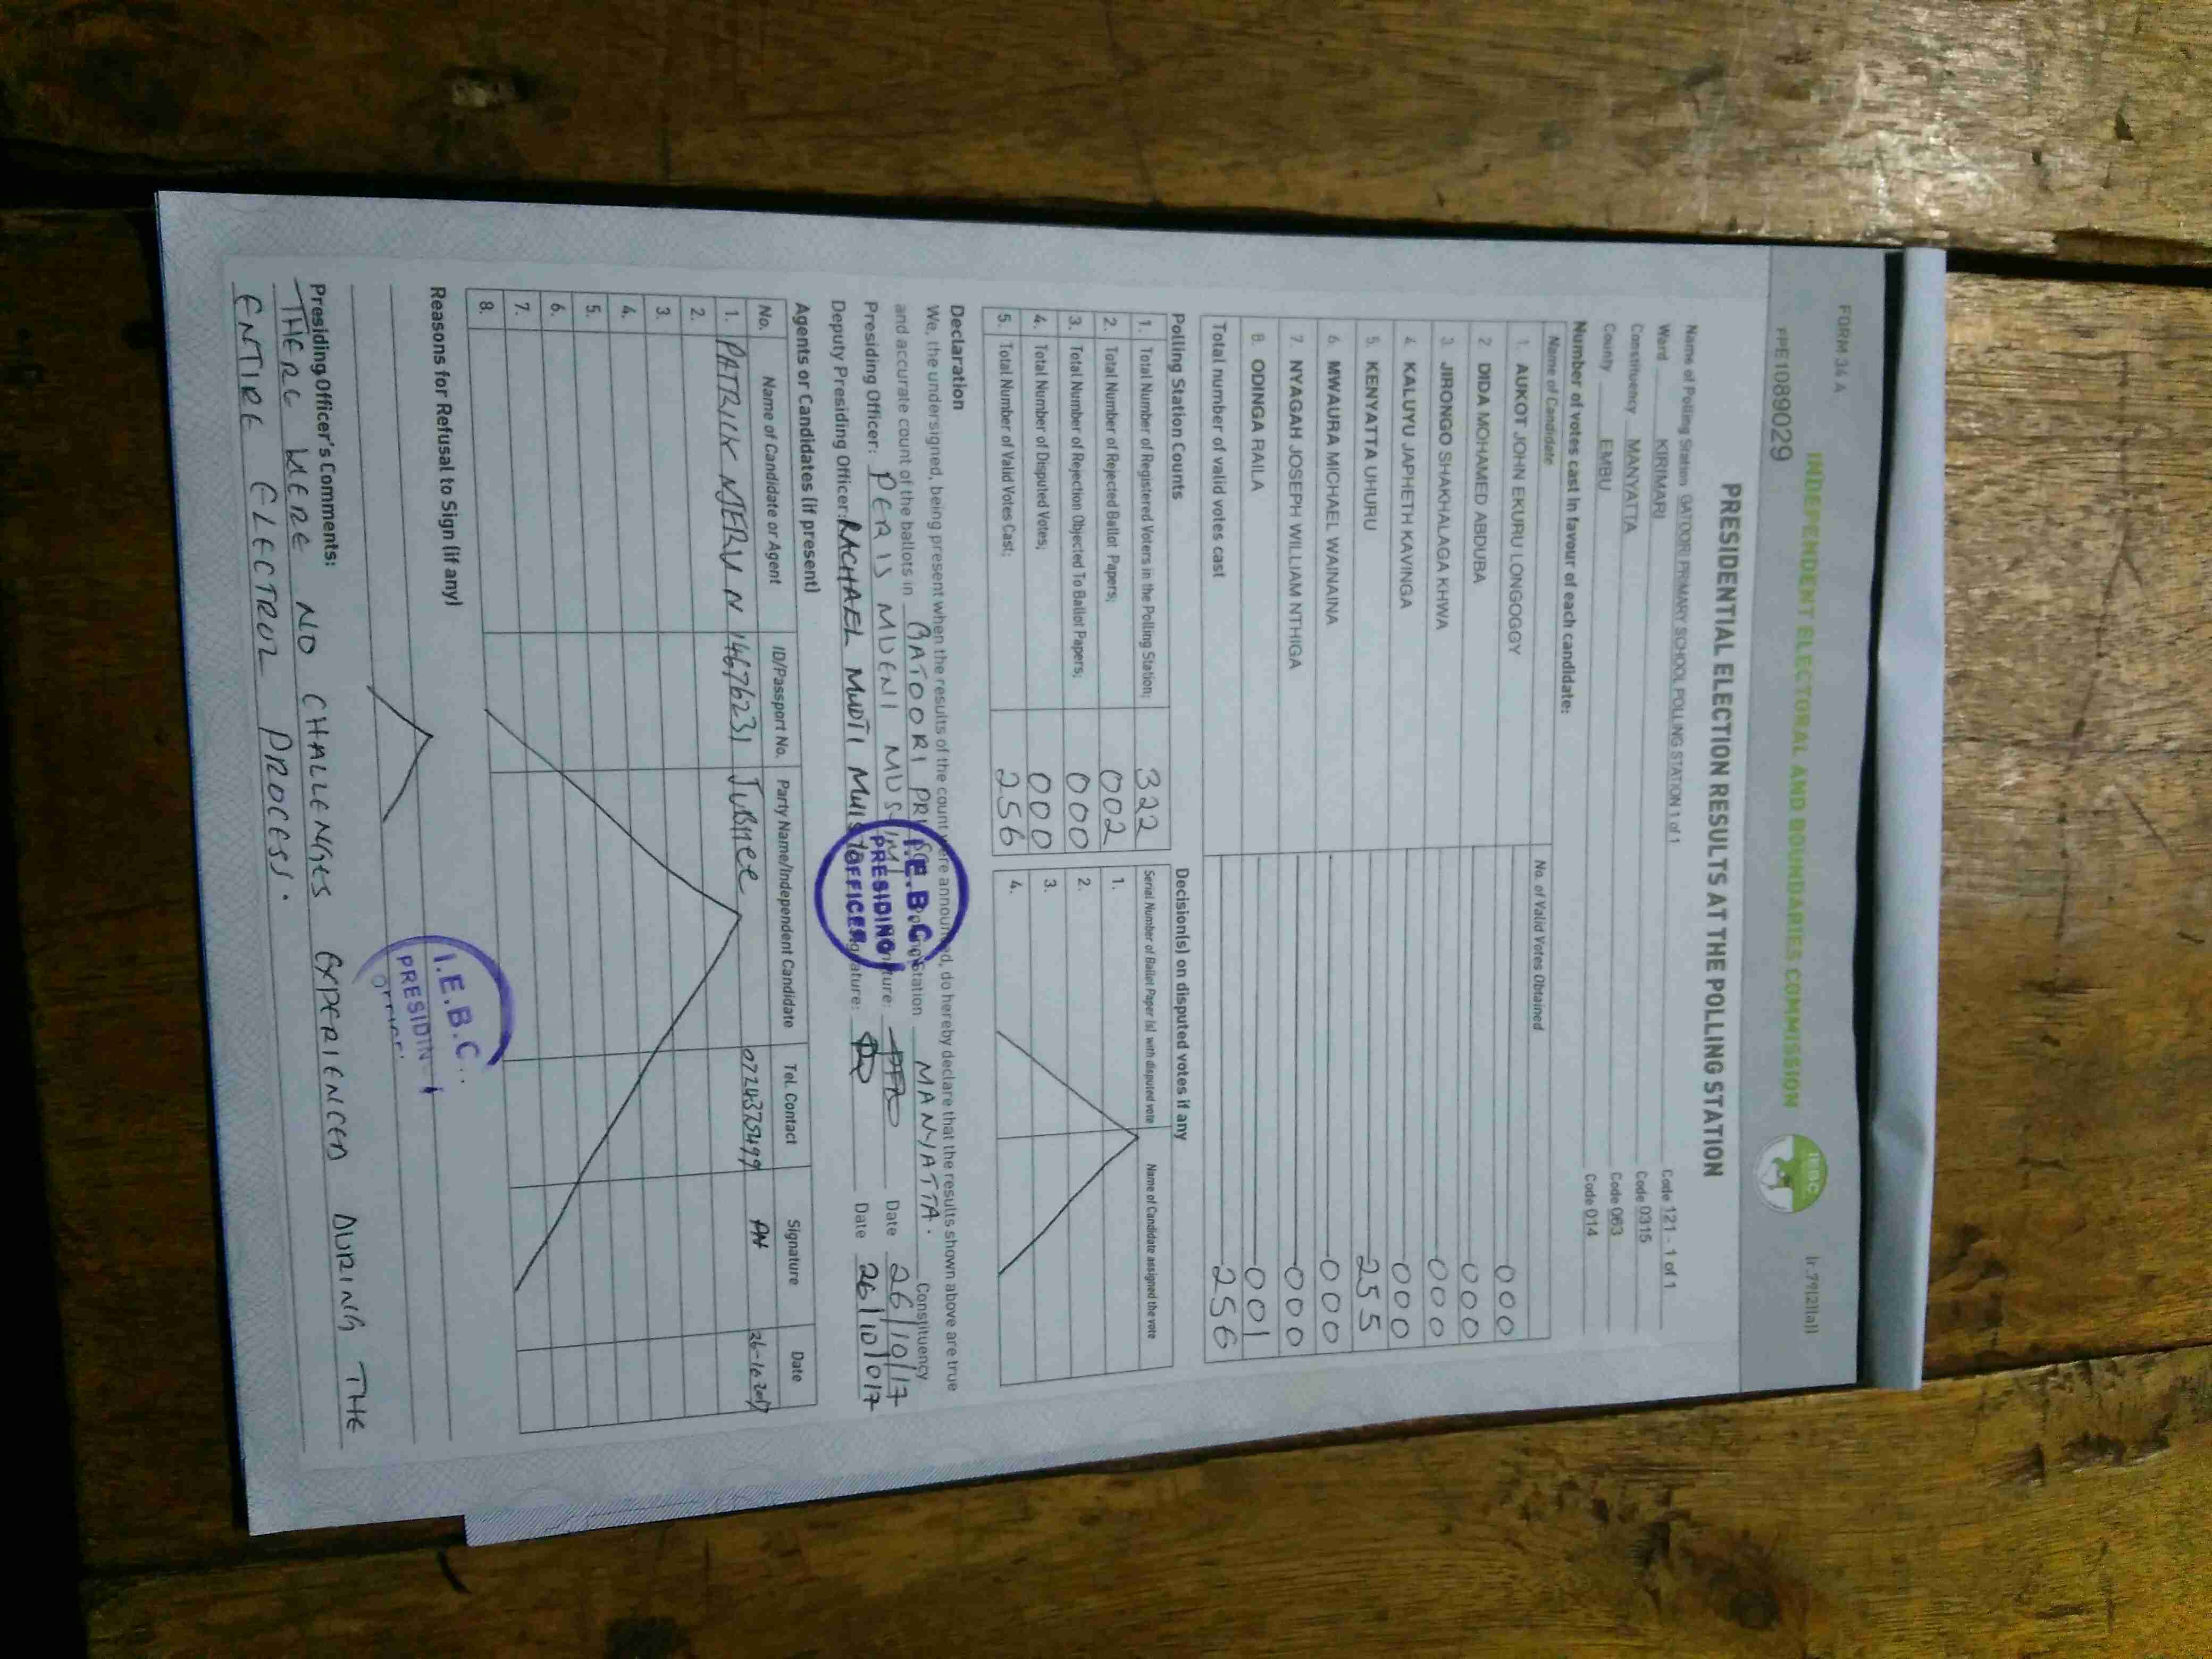 FORM 34 A
INDEPENDENT ELECTORAL AND BOUNDARIES COMMISSION
IEBC
(r.79(2)(a))
PPE1089029
PRESIDENTIAL ELECTION RESULTS AT THE POLLING STATION
Name of Polling Station GATOORI PRIMARY SCHOOL POLLING STATION 1 of 1 Code 121 - 1 of 1
Ward KIRIMARI Code 0315
Constituency MANYATTA Code 063
County EMBU Code 014
Number of votes cast in favour of each candidate:
Name of Candidate No. of Valid Votes Obtained
1. AUKOT JOHN EKURU LONGOGGY 000
2. DIDA MOHAMED ABDUBA 000
3. JIRONGO SHAKHALAGA KHWA 000
4. KALUYU JAPHETH KAVINGA 000
5. KENYATTA UHURU 255
6. MWAURA MICHAEL WAINAINA 000
7. NYAGAH JOSEPH WILLIAM NTHIGA 000
8. ODINGA RAILA 001
Total number of valid votes cast 256
Polling Station Counts
1. Total Number of Registered Voters in the Polling Station; 322
2. Total Number of Rejected Ballot Papers; 002
3. Total Number of Rejection Objected To Ballot Papers; 000
4. Total Number of Disputed Votes; 000
5. Total Number of Valid Votes Cast; 256
Decision(s) on disputed votes if any
Serial Number of Ballot Paper (s) with disputed vote Name of Candidate assigned the vote
1.
2.
3.
4.
Declaration
We, the undersigned, being present when the results of the count were announced, do hereby declare that the results shown above are true
and accurate count of the ballots in GATOORI PRI Polling Station MANYATTA. Constituency
Presiding Officer: PERIS MUENI MUSIMI Signature: Date 26/10/17
Deputy Presiding Officer: RACHAEL MUOTI Signature: Date 26/10/017
I.E.B.C.
PRESIDING
OFFICER
Agents or Candidates (if present)
No. Name of Candidate or Agent ID/Passport No. Party Name/Independent Candidate Tel. Contact Signature Date
1. PATRICK NJERU N 14676231 JUBILEE 0724375499 PN 26-10 2017
2.
3.
4.
5.
6.
7.
8.
Reasons for Refusal to Sign (if any)
I.E.B.C.
PRESIDIN
Presiding Officer's Comments:
THERE WERE NO CHALLENGES EXPERIENCED DURING THE
ENTIRE ELECTROL PROCESS.